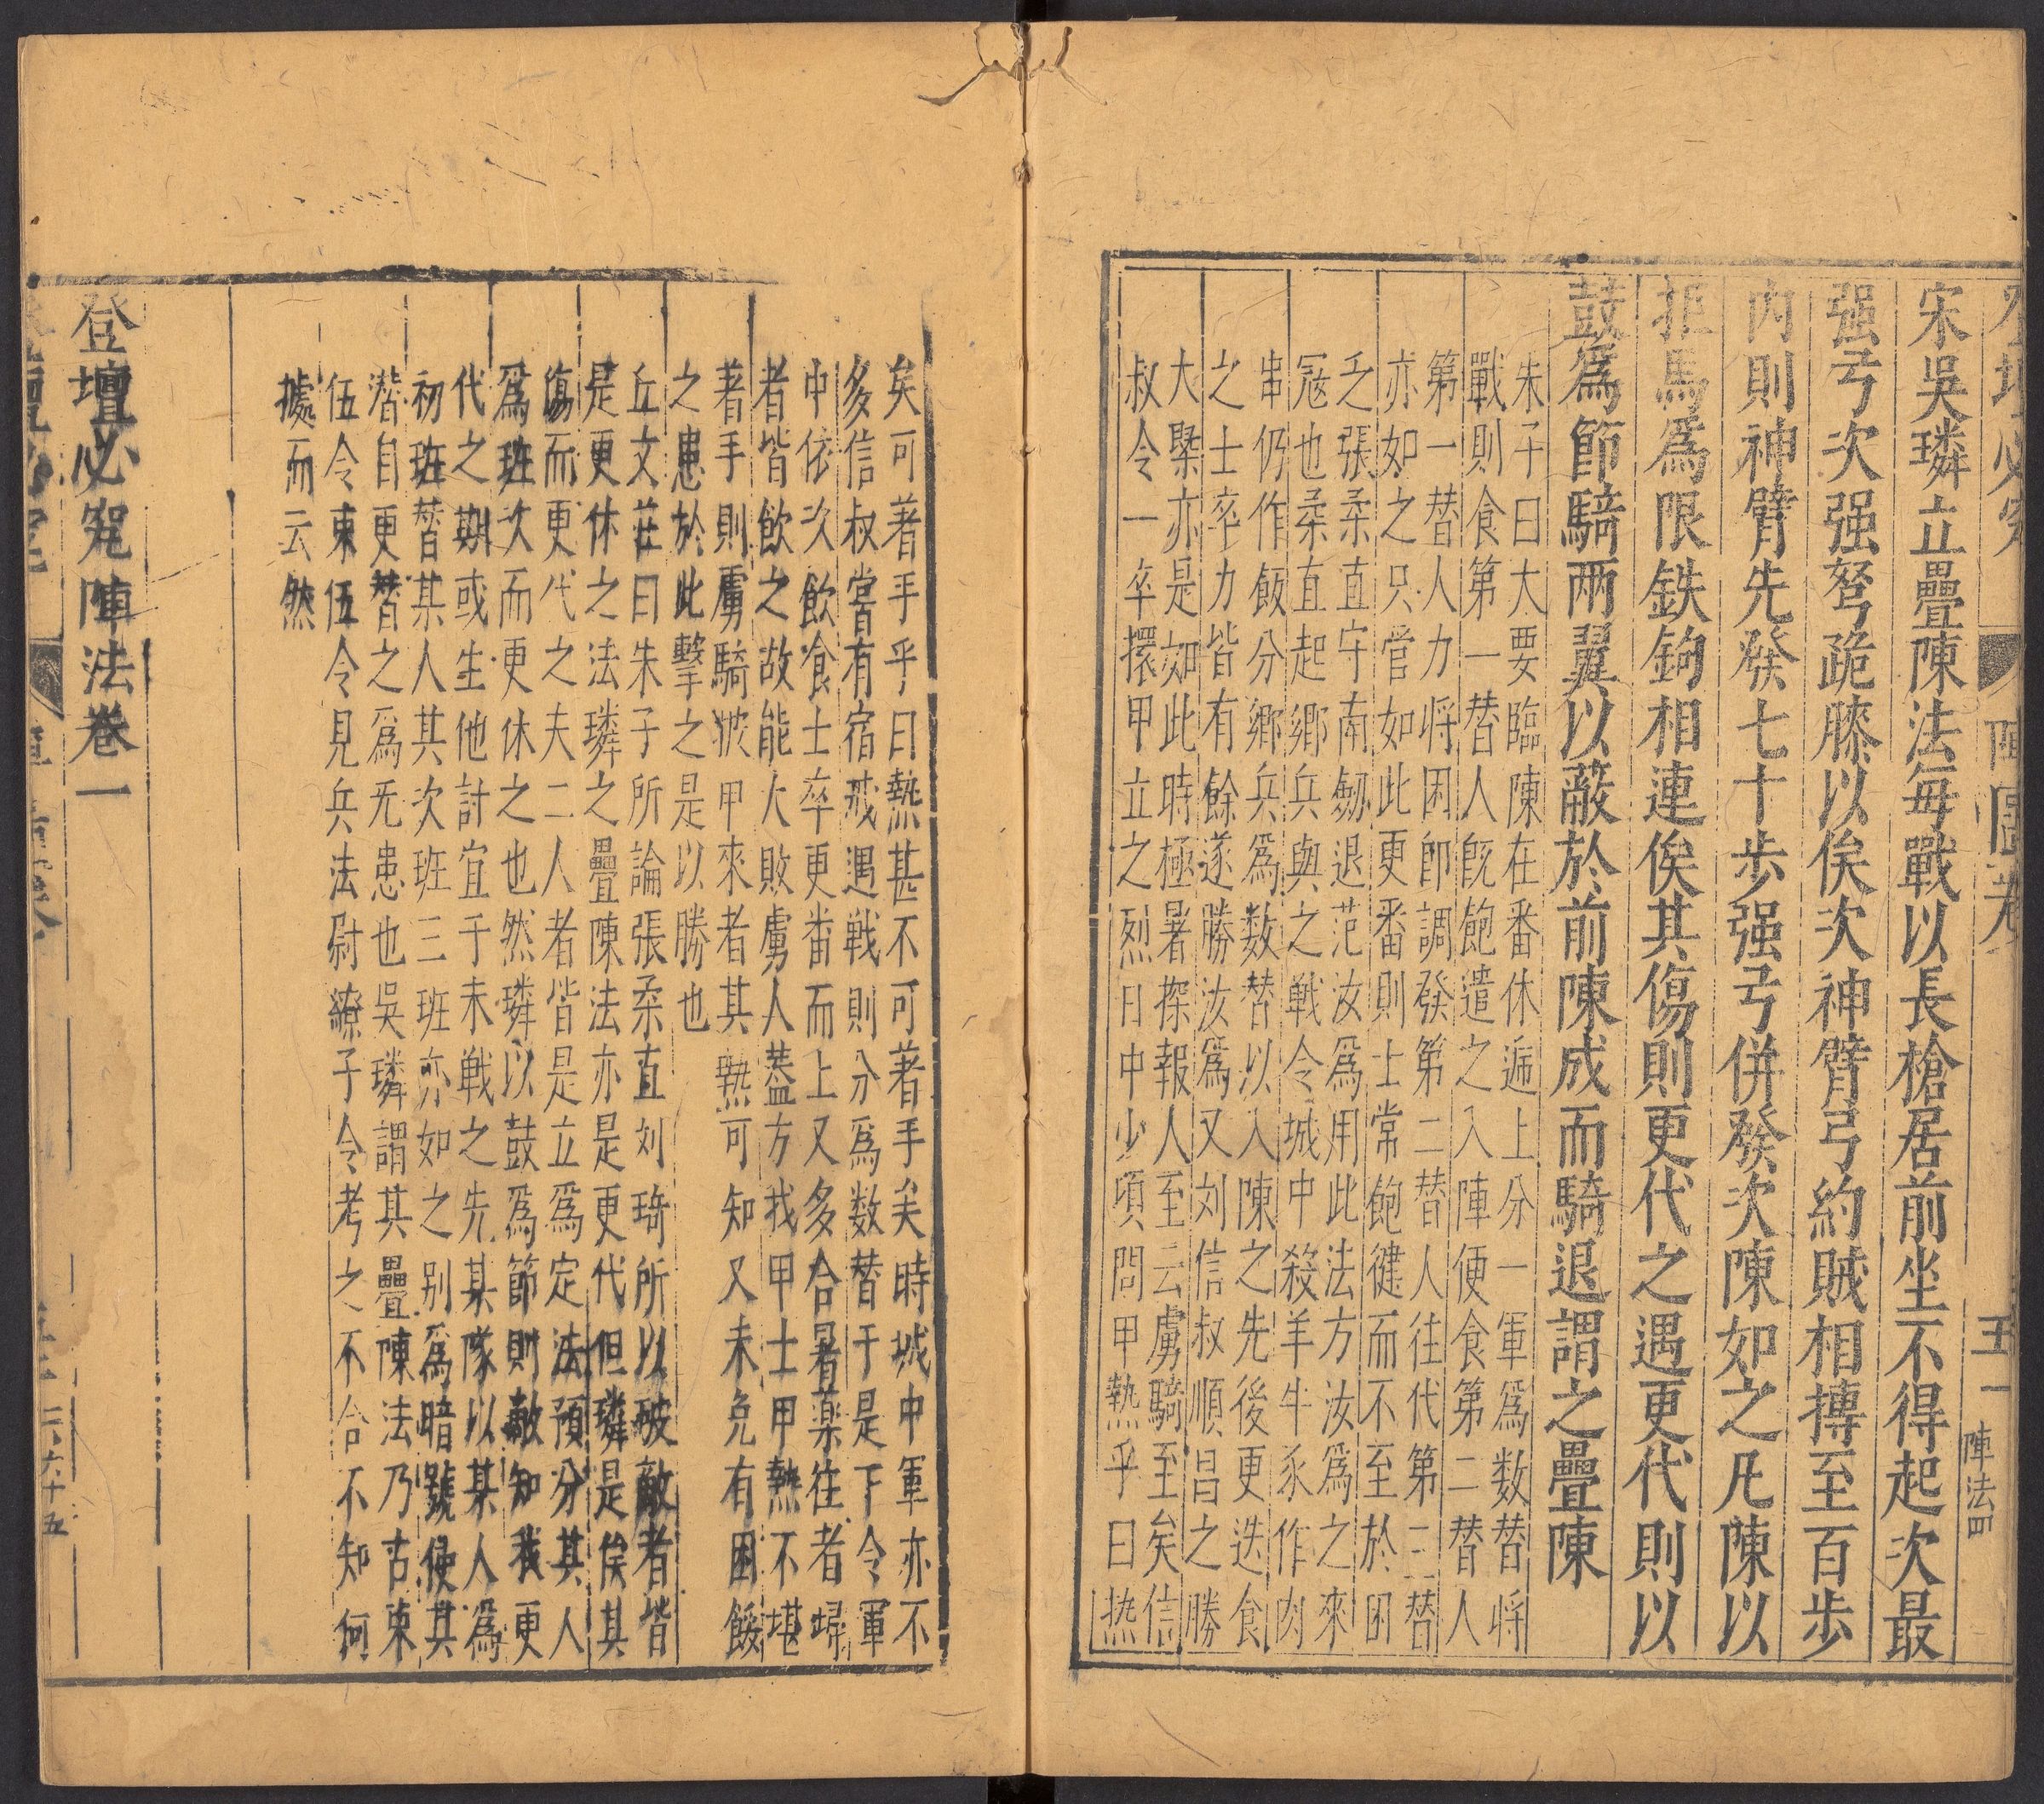 登壇必究
陣圖卷
五一
陣法四
宋吳璘立疊陳法每戰以長槍居前坐不得起次最
强弓次强弩跪膝以俟次神臂弓約賊相搏至百步
內則神臂先發七十步强弓併發次陳如之凡陳以
拒馬爲限鉄鉤相連俟其傷則更代之遇更代則以
鼓爲節騎两翼以蔽於前陳成而騎退謂之疊陳
朱子曰大要臨陳在番休迊上分一軍爲数替将
戰則食第一替人旣飽遣之入陣便食第二替人
第一替人力将困卽調發第二替人往代第三替
亦如之只管如此更番則士常飽徤而不至於困
乏張柔直守南劒退范汝爲用此法方汝爲之來
冦也柔直起鄉兵與之戰令城中殺羊牛豕作肉
串仍作飯分鄉兵爲数替以入陳之先後更迭食
之士卒力皆有餘遂勝汝爲又刘信叔順昌之勝
大槩亦是如此時極暑探報人至云虜騎至矣信
叔令一卒擐甲立之烈日中少項問甲熱乎曰热
矣可著手乎曰熱甚不可著手矣時城中軍亦不
多信叔嘗有宿戒遇戦則分爲数替于是下令軍
中依次飲食士卒更畨而上又多合暑薬往者歸
者皆飲之故能大敗虜人蓋方我甲士甲熱不堪
著手則虜騎披甲來者其熱可知又未免有困餒
之患於此擊之是以勝也
丘文莊曰朱子所論張柔直刘琦所以破敵者皆
是更休之法璘之疊陳法亦是更代但璘是俟其
傷而更代之夫二人者皆是立爲定法預分其人
爲班次而更休之也然璘以鼓爲節則敵知我更
代之期或生他計宜于未戦之先某隊以某人爲
初班替某人其次班三班亦如之别爲暗號使其
潛自更替之爲无患也吳璘謂其疊陳法乃古束
伍令束伍令見兵法尉繚子令考之不合不知何
據而云然
登壇必究陣法卷一